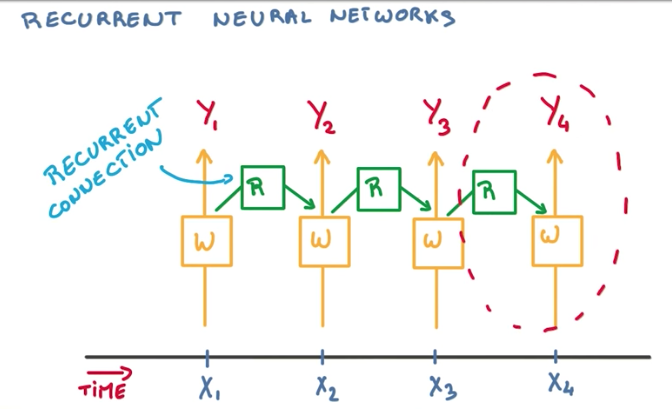 RECURRENT NEURAL NETWORKS
RECURRENT
CONNECTION
Y₁ Y₂ Y₃ Y₄
R R R
W W W W
TIME
X₁ X₂ X₃ X₄